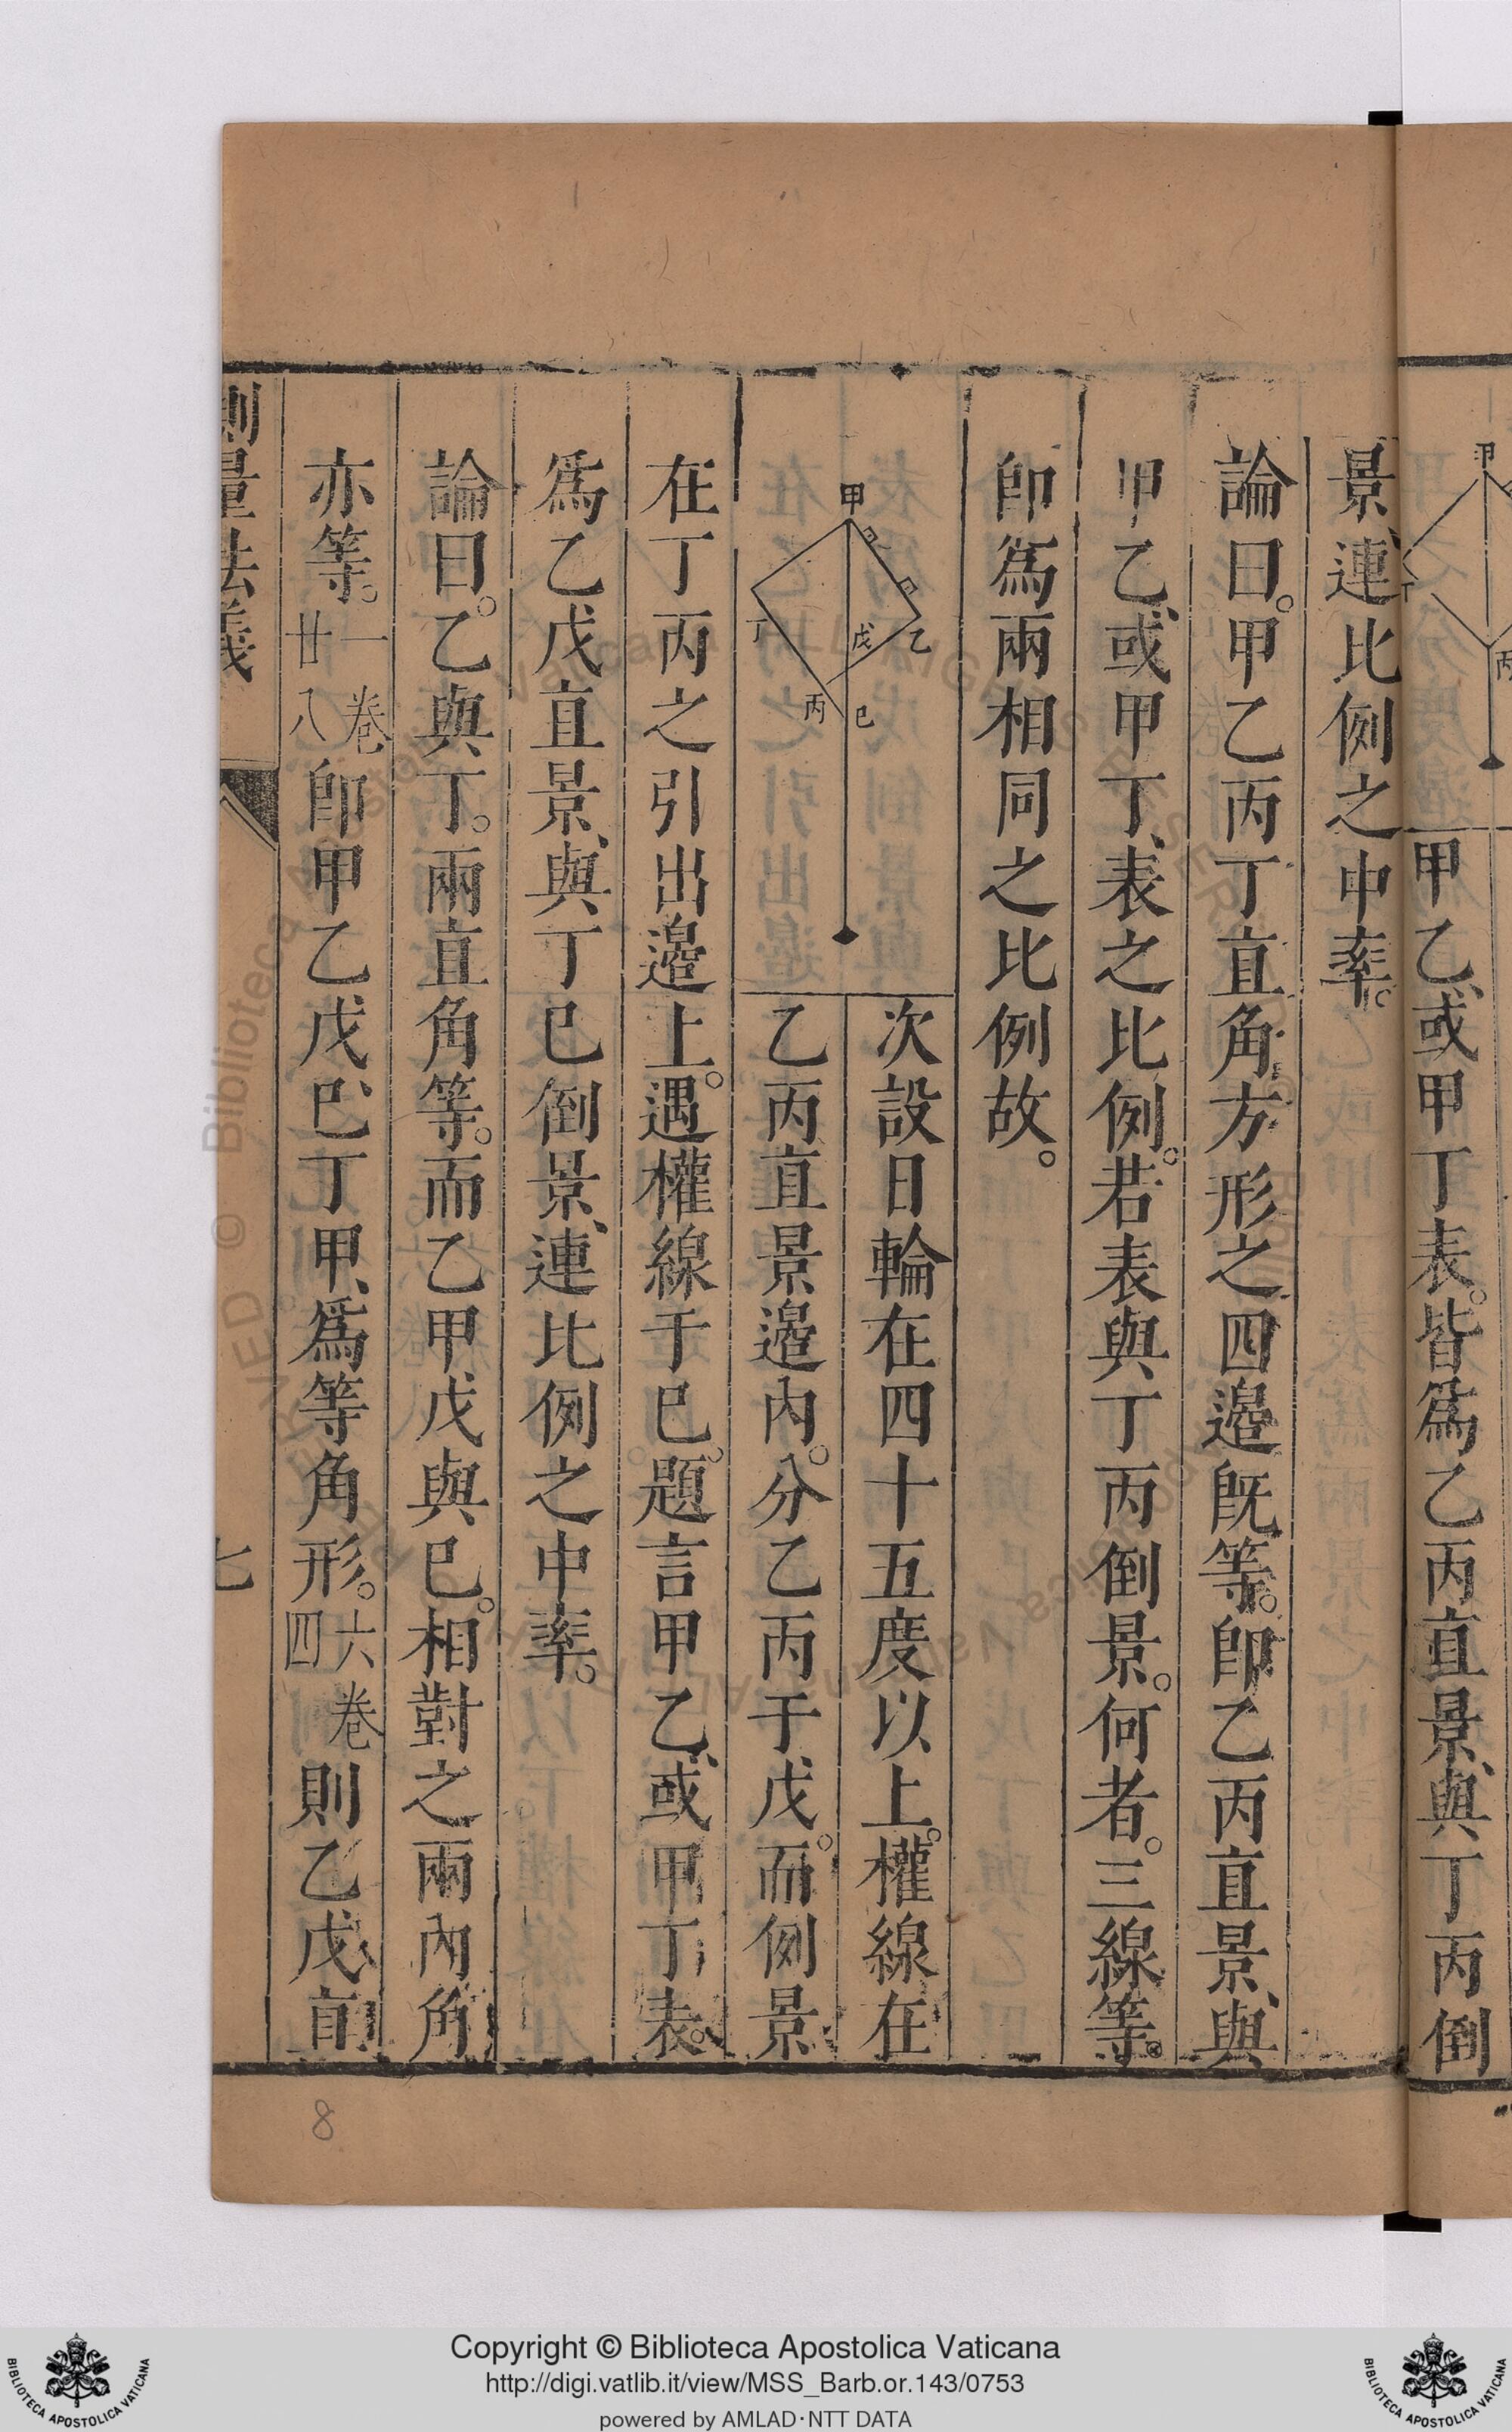 甲
丙
甲乙、或甲丁表。皆爲乙丙直景、與丁丙倒
景、連比例之中率。
論曰。甲乙丙丁直角方形之四邉旣等。卽乙丙直景、與
甲乙、或甲丁、表之比例。若表與丁丙倒景。何者。三線等。
卽爲兩相同之比例故。
甲
乙
丁
戊
丙
己
次設日輪在四十五度以上。權線在
乙丙直景邉內。分乙丙于戊。而倒景
在丁丙之引出邉上。遇權線于己。題言甲乙、或甲丁表。
爲乙戊直景、與丁己倒景、連比例之中率。
論曰。乙與丁。兩直角等。而乙甲戊與己。相對之兩內角
亦等。一卷廿八卽甲乙戊、己丁甲、爲等角形。六卷四則乙戊直
測量法義
七
8
Copyright © Biblioteca Apostolica Vaticana
http://digi.vatlib.it/view/MSS_Barb.or.143/0753
powered by AMLAD·NTT DATA
BIBLIOTECA APOSTOLICA VATICANA
BIBLIOTECA APOSTOLICA VATICANA